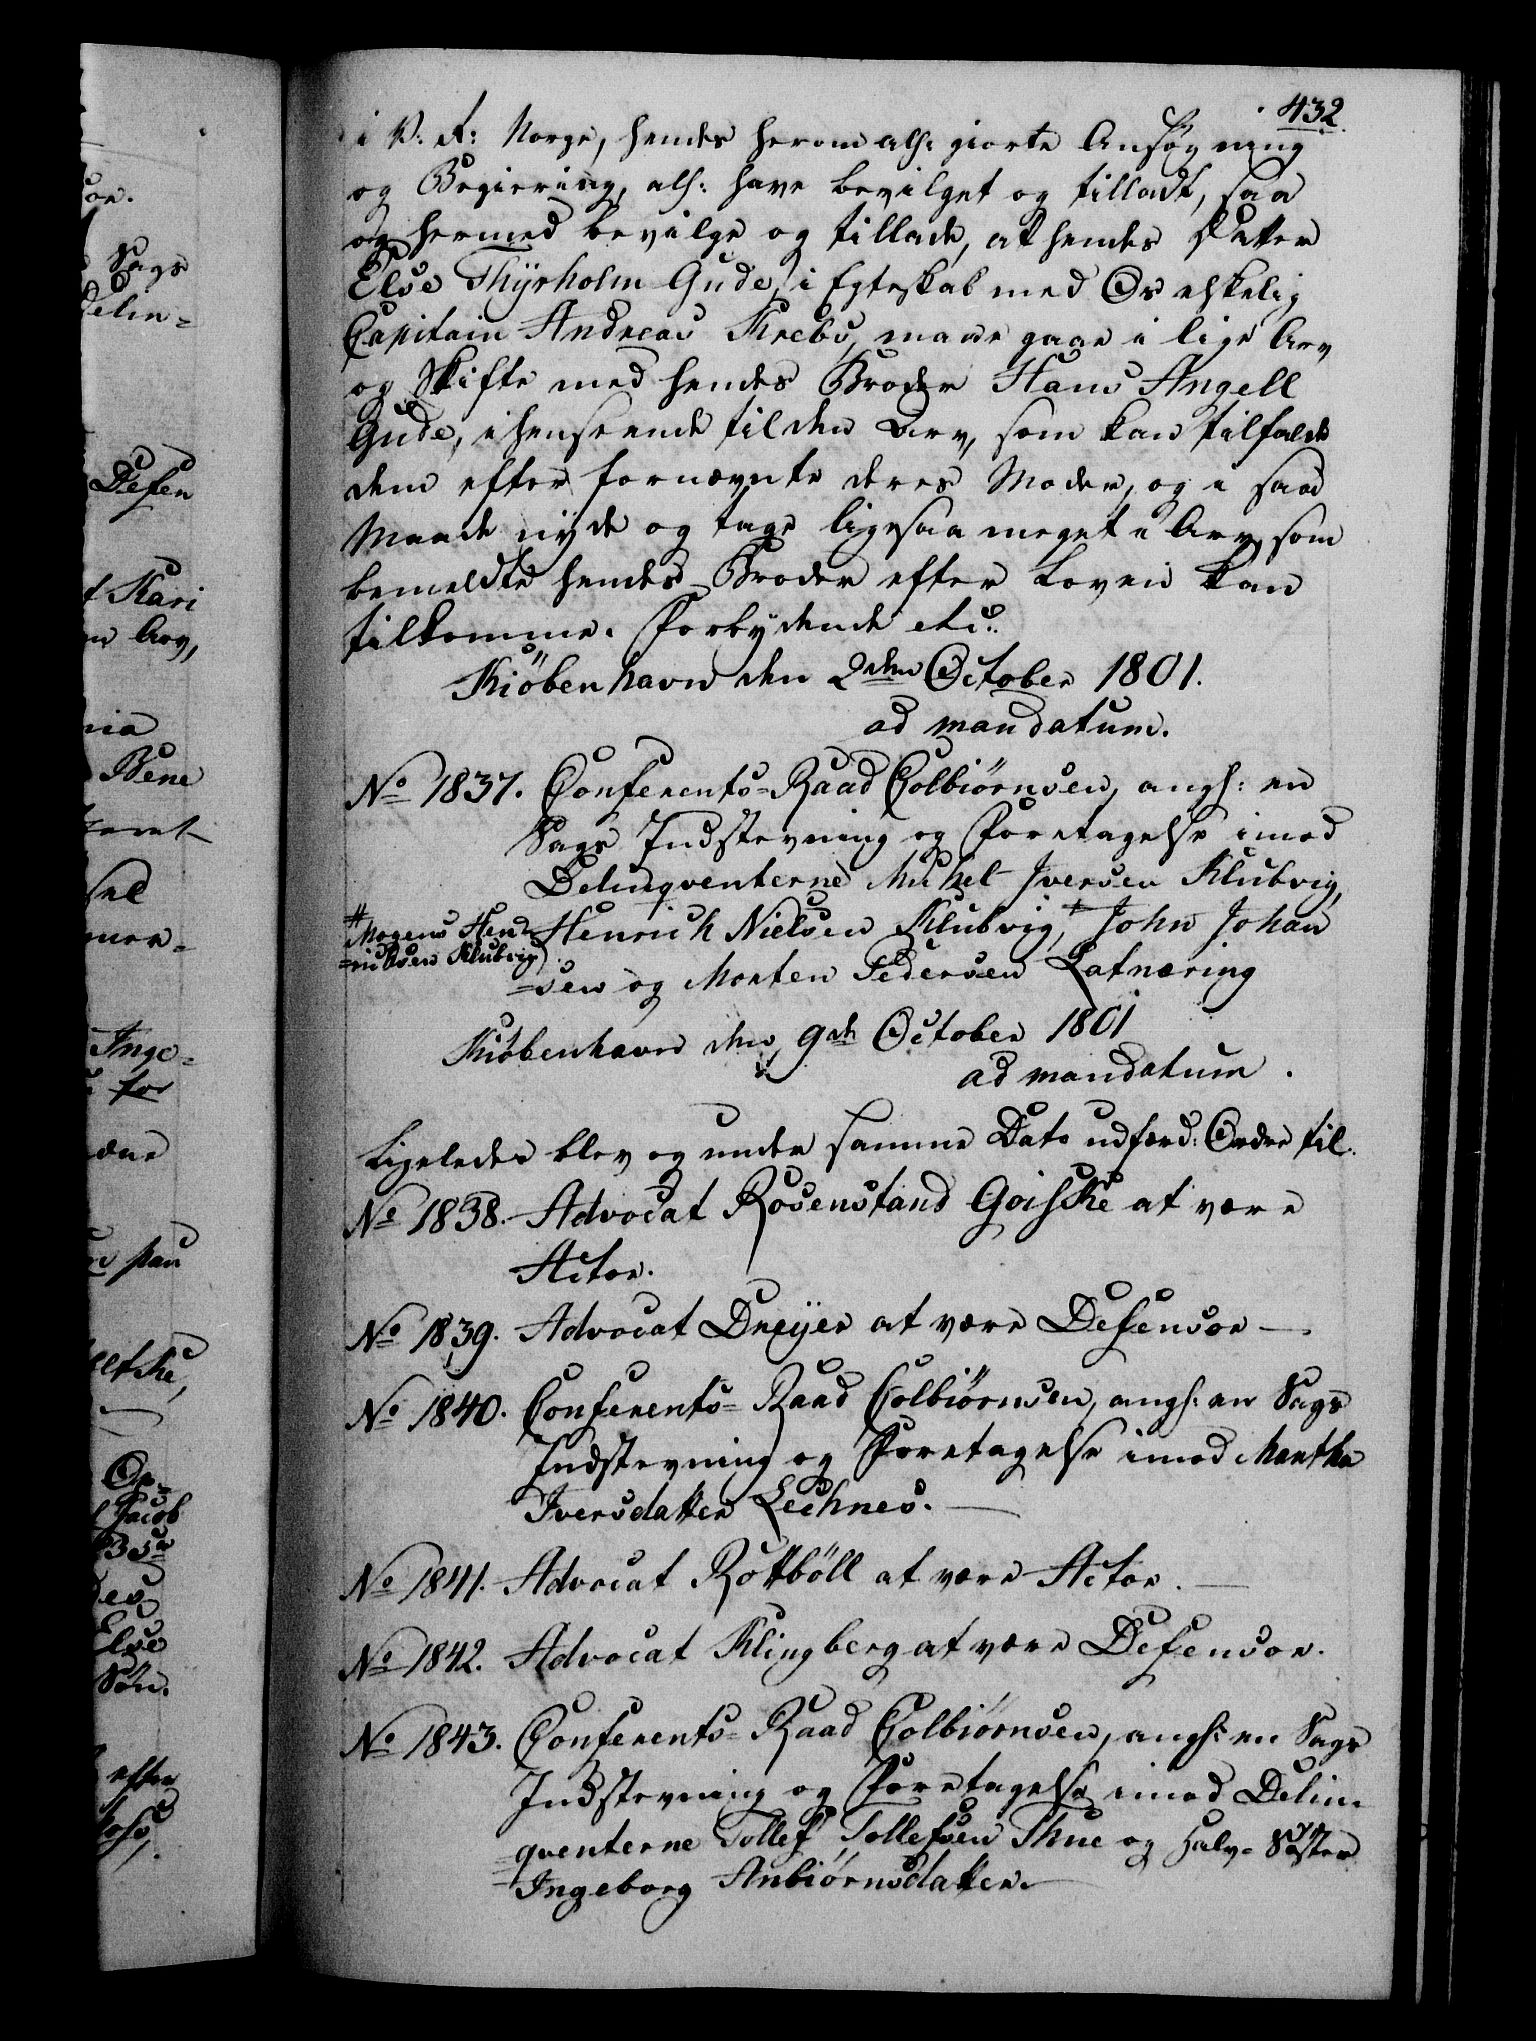 432.
i V: R: Norge, hendes herom alh: giorte Ansøgning
og Begiering, alh: have bevilget og tilladt, saa
og hermed bevilge og tillade, at hendes Datter
Else Thyrholm Gude, i Egteskab med Os elskelig
Capitain Andreas Krebs, maae gaae i lige Arv
og Skifte med hendes Broder Hans Angell
Gude, i henseende til den Arv, som kan tilfalde
dem efter fornævnte deres Moder, og i saa
Maade nyde og tage ligesaa meget i Arv, som
bemeldte hendes Broder efter Loven kan
tilkomme. Forbydende etc:
Kiöbenhavn den 2den October 1801.
ad mandatum.
No 1837. Conferents-Raad Colbiörnsen, angh: en
Sags Indstevning og Foretagelse imod
Delinqventerne Mikel Iversen Klubvig,
Henrich Nielsen Klubvig, # John Johan
# Mogens Hen-
=richsen Klubvig
=sen og Morten Pedersen Latnæring
Kiöbenhavn den 9de October 1801
ad mandatum.
Ligeledes blev og under samme Dato udfærd: Ordre til.
No 1838. Advocat Rosenstand Goiske at være
Actor.
No 1839. Advocat Dreyer at være Defensor —
No 1840. Conferents-Raad Colbiörnsen, angh: en Sags
Indstevning og Foretagelse imod Marthe
Iversdatter Lechnes. —
No 1841. Advocat Rottböll at være Actor. —
No 1842. Advocat Klingberg at være Defensor.
No 1843. Conferents-Raad Colbiörnsen, angh: en Sags
Indstevning og Foretagelse imod Delin-
=qventerne Tollef Tollefsen Thue og Halv-Søster
Ingeborg Anbiörnsdatter. —